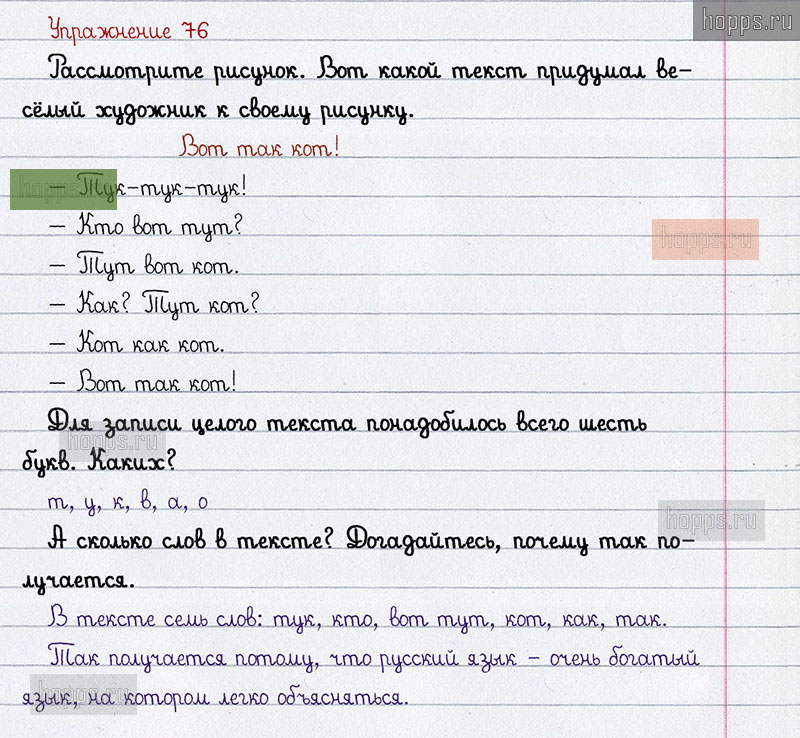 hopps.ru
Упражнение 76
Рассмотрите рисунок. Вот какой текст придумал ве-
сёлый художник к своему рисунку.
Вот так кот!
hopps.ru
— Тук-тук-тук!
— Кто вот тут?
hopps.ru
— Тут вот кот.
— Как? Тут кот?
— Кот как кот.
— Вот так кот!
Для записи целого текста понадобилось всего шесть
hopps.ru
букв. Каких?
т, у, к, в, а, о
hopps.ru
А сколько слов в тексте? Догадайтесь, почему так по-
лучается.
В тексте семь слов: тук, кто, вот тут, кот, как, так.
Так получается потому, что русский язык – очень богатый
язык, на котором легко объясняться.
hopps.ru